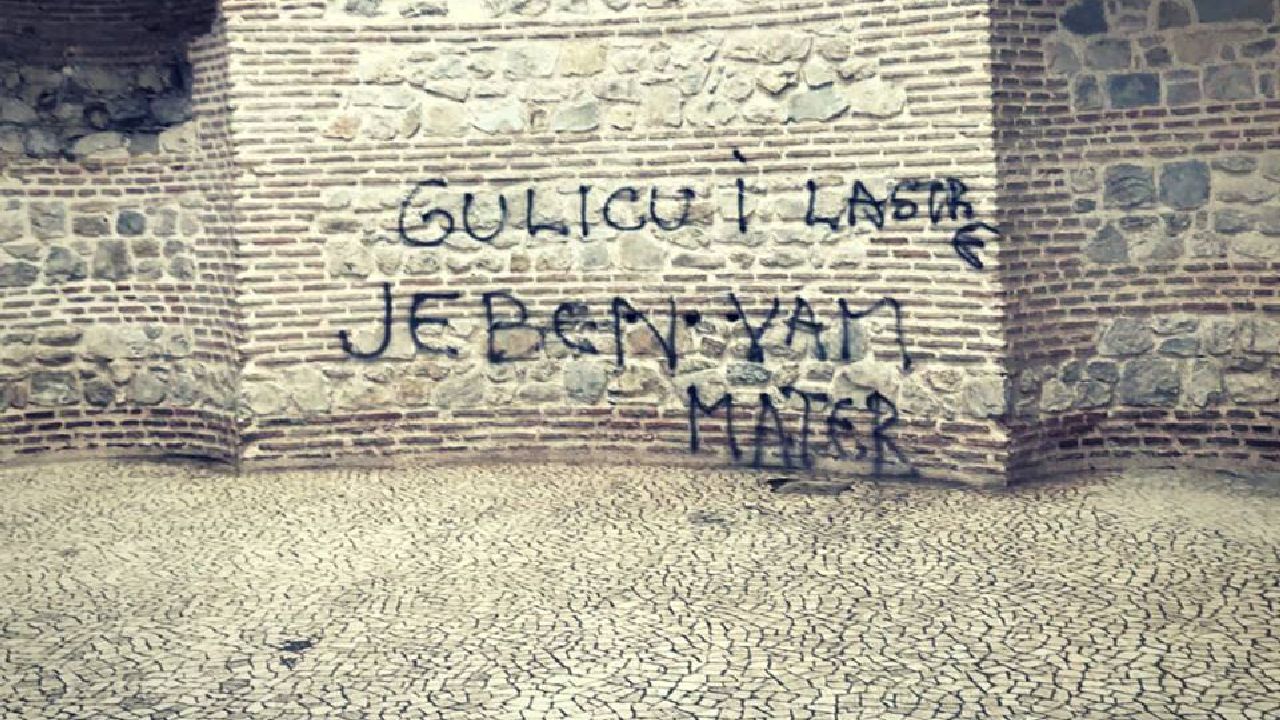 GULICU I LASTRE
JEBEN VAM
MATER